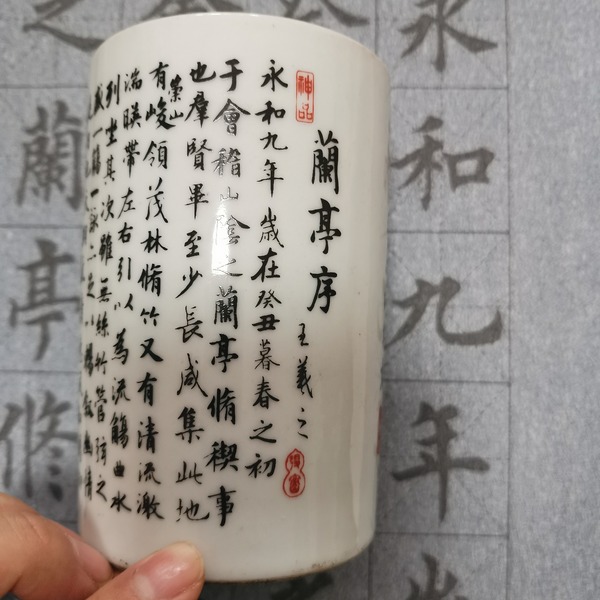 神品
蘭亭序
王羲之
永和九年歲在癸丑暮春之初
于會稽山陰之蘭亭脩稧事
也羣賢畢至少長咸集此地
有崇山峻領茂林脩竹又有清流激
湍暎帶左右引以為流觴曲水
列坐其次雖無絲竹管弦之
盛一觴一詠亦足以暢敘幽情
永
和
九
年
蘭
亭
修